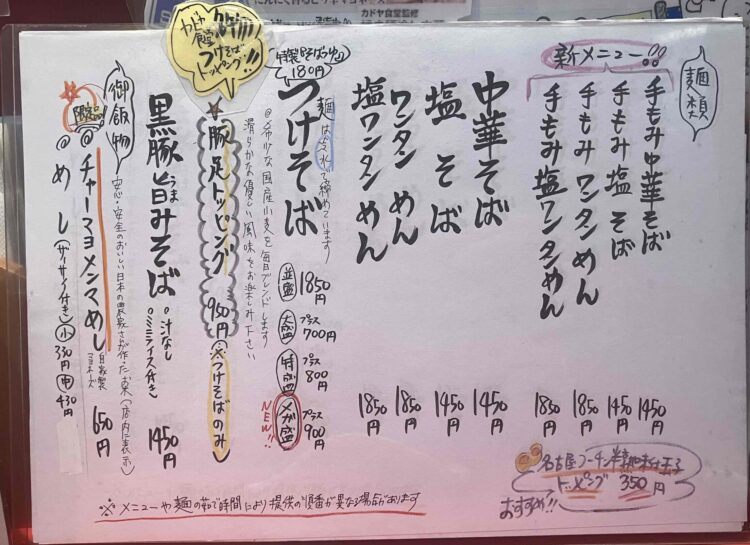 カドヤ食堂監修
麺類
新メニュー!!
手もみ中華そば 1450円
手もみ塩そば 1450円
手もみワンタンめん 1850円
手もみ塩ワンタンめん 1850円
中華そば 1450円
塩そば 1450円
ワンタンめん 1850円
塩ワンタンめん 1850円
麺は冷水で締めています
特製そばつゆ
180円
つけそば
並盛 1850円
大盛 プラス700円
特盛 プラス800円
メガ盛 プラス900円
NEW!!
@希少な国産小麦を毎日ブレンドします
滑らかな優しい風味をお楽しみ下さい
カドヤ食堂
つけそば
トッピング!!
豚足トッピング 950円(※つけそばのみ)
黒豚旨みそば 1450円
うま
汁なし
ミニライス付き
御飯物
安心・安全のおいしい日本の農家さんが作ったお米(店内に表示)
限定
@チャーマヨメンマめし 自家製マヨネーズ 650円
@めし(サイサイ付き) 小 330円 中 430円
名古屋コーチン半熟味付玉子
トッピング 350円
おすすめ!!
※メニューや麺の茹で時間により提供の順番が異なる場合があります